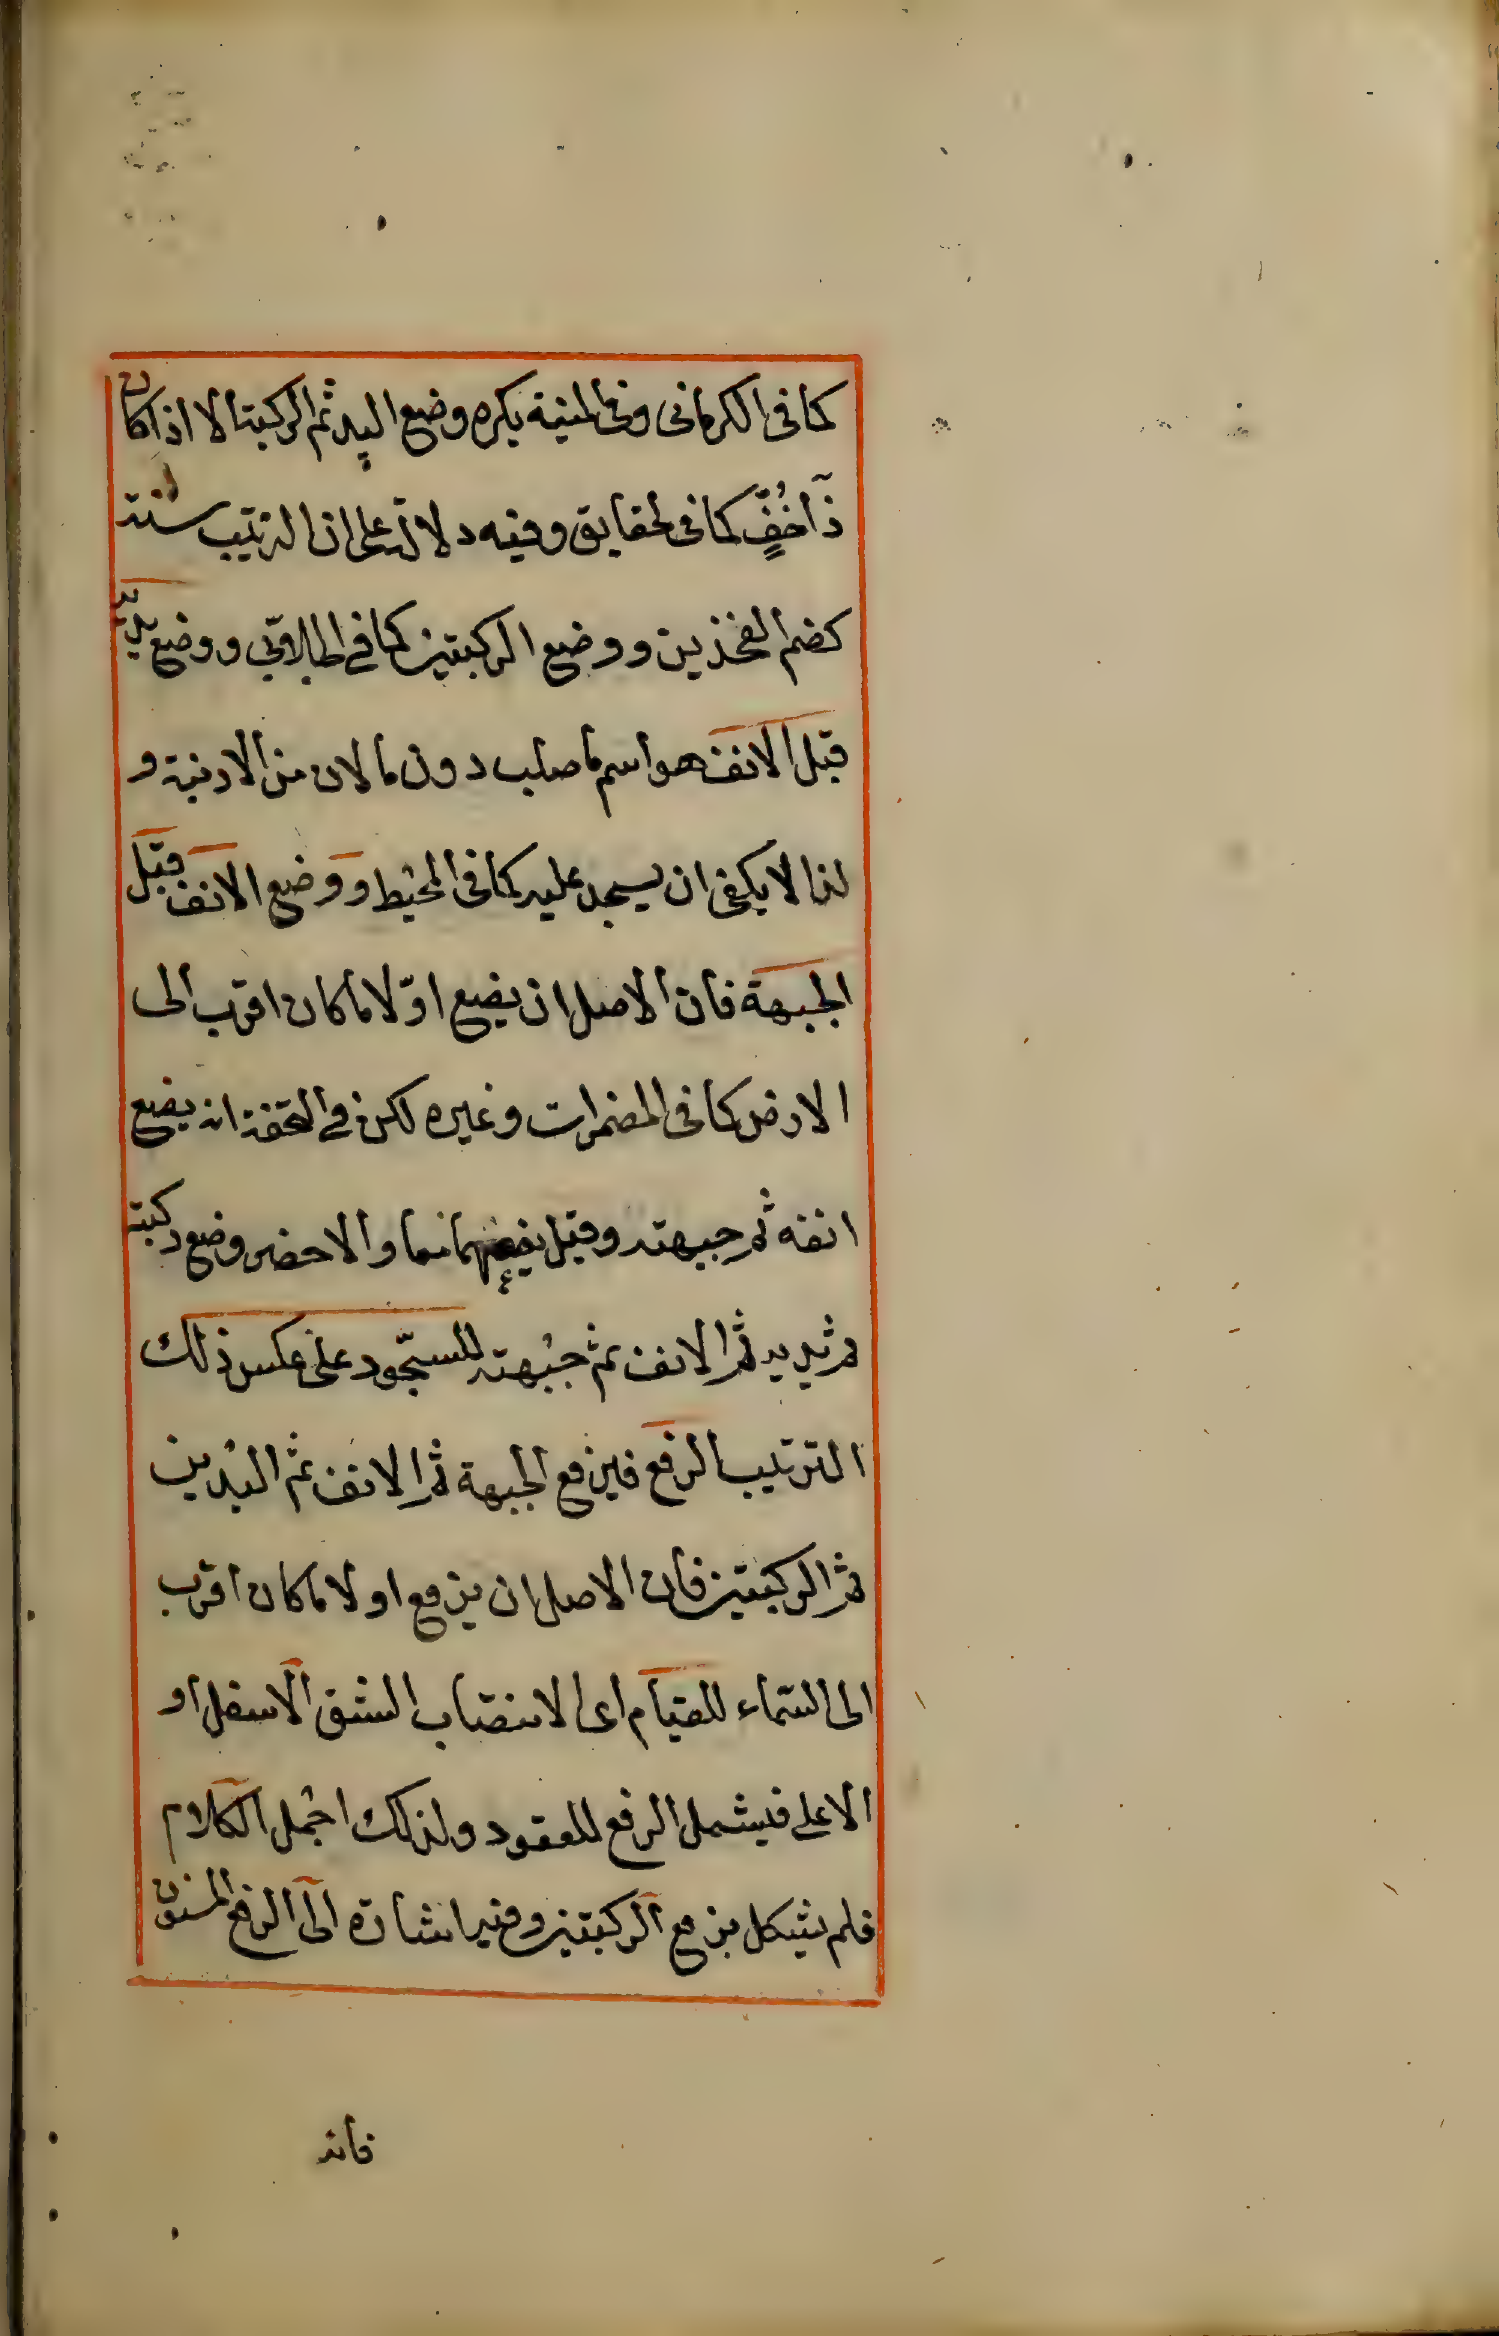 كما فى الكرمانى وفى المنية يكره وضع اليد ثم الركبة الا اذا كان
ذا خُفٍّ كما فى الحقايق وفيه دلالة على ان الترتيب سنة
كضم الفخذين ووضع الركبتين كما فى الجلابى ووضع يديه
قبل الانف هو اسم ما صلب دون ما لان من الارنبة و
لذا لا يكفى ان يسجد عليه كما فى المحيط ووضع الانف قبل
الجبهة فان الاصل ان يضع اوّلا ما كان اقرب الى
الارض كما فى المضمرات وغيره لكن فى التحفة انه يضع
انفه ثم جبهته وقيل يضعهما معا والاخصر وضع ركبته
ثم يديه ثم الانف ثم جبهته للسجّود على عكس ذلك
الترتيب الرفع فيرفع الجبهة ثم الانف ثم اليدين
ثم الركبتين فان الاصل ان يرفع اولا ما كان اقرب
الى السّماء للقيام اى الانتصاب الشق الاسفل او
الاعلى فيشمل الرفع للعقود ولذلك اجمل الكلام
فلم يشكل برفع الركبتين وفيه اشارة الى الرفع المسنون
فانه